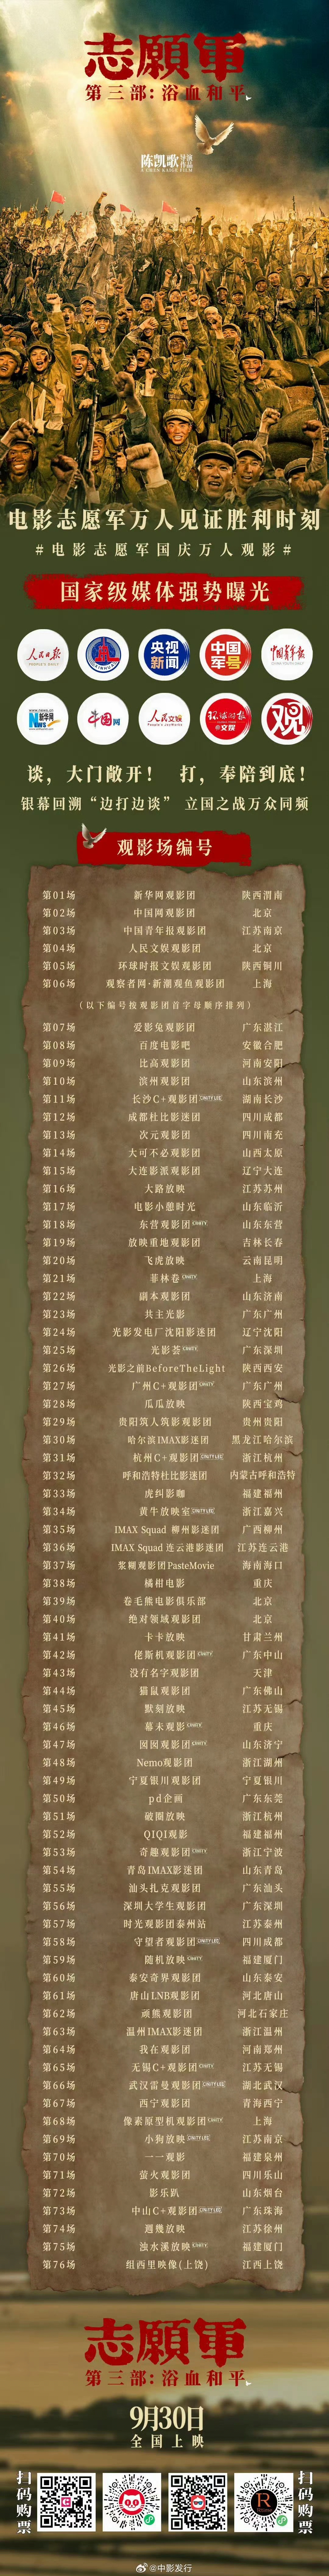 志願軍
第三部：浴血和平
陈凯歌 导演作品
A CHEN KAIGE FILM
电影志愿军万人见证胜利时刻
#电影志愿军国庆万人观影#
国家级媒体强势曝光
人民日报 PEOPLE'S DAILY
XINHUA
央视新闻
中国军号
中国青年报
www.news.cn 新华网 News
中国网
人民文娱
环球时报 文娱
观
谈，大门敞开！ 打，奉陪到底！
银幕回溯“边打边谈” 立国之战万众同频
观影场编号
第01场 新华网观影团 陕西渭南
第02场 中国网观影团 北京
第03场 中国青年报观影团 江苏南京
第04场 人民文娱观影团 北京
第05场 环球时报文娱观影团 陕西铜川
第06场 观察者网·新潮观鱼观影团 上海
（以下编号按观影团首字母顺序排列）
第07场 爱影兔观影团 广东湛江
第08场 百度电影吧 安徽合肥
第09场 比高观影团 河南安阳
第10场 滨州观影团 山东滨州
第11场 长沙C+观影团 湖南长沙
第12场 成都杜比影迷团 四川成都
第13场 次元观影团 四川南充
第14场 大可不必观影团 山西太原
第15场 大连影派观影团 辽宁大连
第16场 大路放映 江苏苏州
第17场 电影小憩时光 山东临沂
第18场 东营观影团 山东东营
第19场 放映重地观影团 吉林长春
第20场 飞虎放映 云南昆明
第21场 菲林卷 上海
第22场 副本观影团 山东济南
第23场 共主光影 广东广州
第24场 光影发电厂沈阳影迷团 辽宁沈阳
第25场 光影荟 广东深圳
第26场 光影之前BeforeTheLight 陕西西安
第27场 广州C+观影团 广东广州
第28场 瓜瓜放映 陕西宝鸡
第29场 贵阳筑人筑影观影团 贵州贵阳
第30场 哈尔滨IMAX影迷团 黑龙江哈尔滨
第31场 杭州C+观影团 浙江杭州
第32场 呼和浩特杜比影迷团 内蒙古呼和浩特
第33场 虎纠影咖 福建福州
第34场 黄牛放映室 浙江嘉兴
第35场 IMAX Squad 柳州影迷团 广西柳州
第36场 IMAX Squad 连云港影迷团 江苏连云港
第37场 浆糊观影团PasteMovie 海南海口
第38场 橘柑电影 重庆
第39场 卷毛熊电影俱乐部 北京
第40场 绝对领域观影团 北京
第41场 卡卡放映 甘肃兰州
第42场 佬斯机观影团 广东中山
第43场 没有名字观影团 天津
第44场 猫鼠观影团 广东佛山
第45场 默刻放映 江苏无锡
第46场 幕未观影 重庆
第47场 囡囡观影团 山东济宁
第48场 Nemo观影团 浙江湖州
第49场 宁夏银川观影团 宁夏银川
第50场 pd企画 广东东莞
第51场 破圈放映 浙江杭州
第52场 QIQI观影 福建福州
第53场 奇趣观影团 浙江宁波
第54场 青岛IMAX影迷团 山东青岛
第55场 汕头扎克观影团 广东汕头
第56场 深圳大学生观影团 广东深圳
第57场 时光观影团泰州站 江苏泰州
第58场 守望者观影团 四川成都
第59场 随机放映 福建厦门
第60场 泰安奇界观影团 山东泰安
第61场 唐山LNB观影团 河北唐山
第62场 顽熊观影团 河北石家庄
第63场 温州IMAX影迷团 浙江温州
第64场 我在观影团 河南郑州
第65场 无锡C+观影团 江苏无锡
第66场 武汉雷曼观影团 湖北武汉
第67场 西宁观影团 青海西宁
第68场 像素原型机观影团 上海
第69场 小狗放映 江苏南京
第70场 一一观影 福建泉州
第71场 萤火观影团 四川乐山
第72场 影乐趴 山东烟台
第73场 中山C+观影团 广东珠海
第74场 週幾放映 江苏徐州
第75场 浊水溪放映 福建厦门
第76场 组西里映像(上饶) 江西上饶
志願軍
第三部：浴血和平
9月30日
全国上映
扫码购票
扫码购票
@中影发行